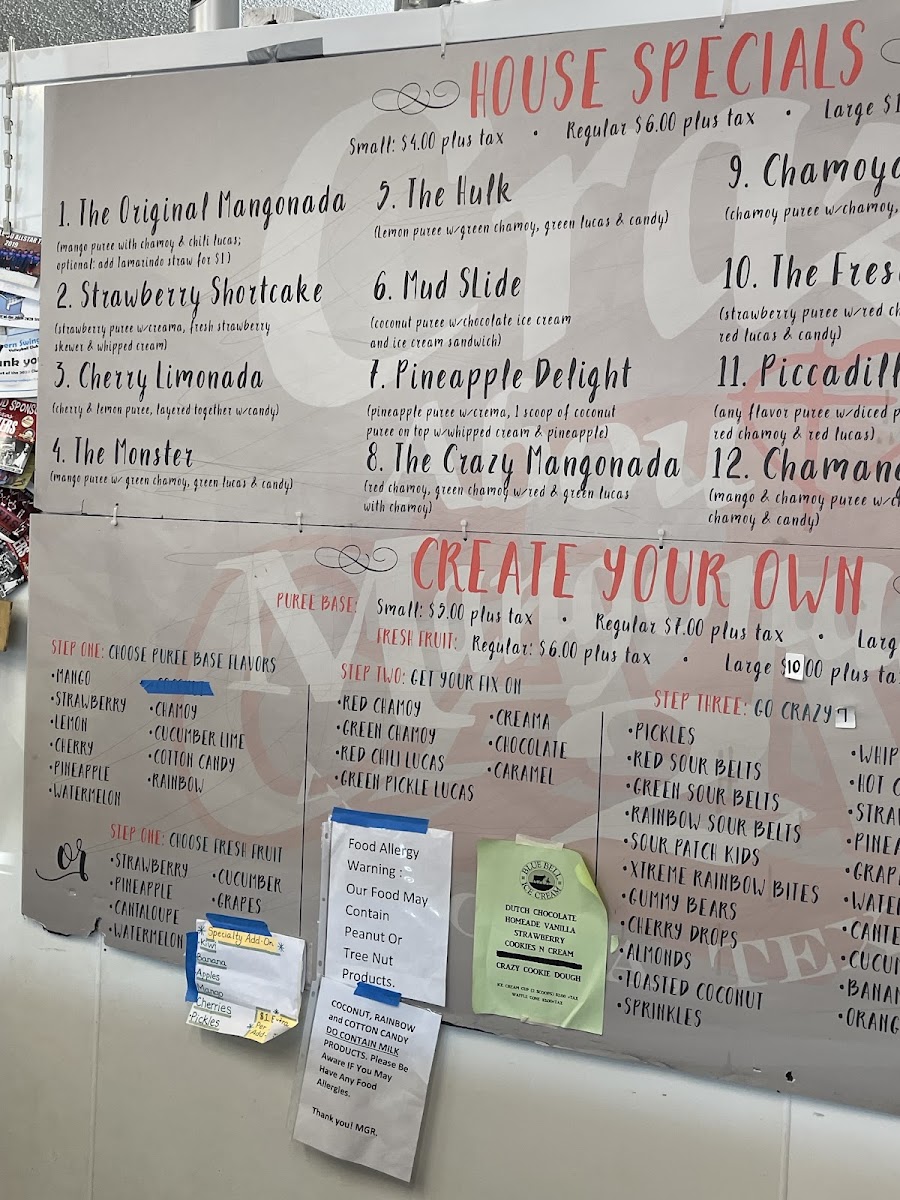 HOUSE SPECIALS
Small: $4.00 plus tax • Regular $6.00 plus tax • Large $1
1. The Original Mangonada
(mango puree with chamoy & chili lucas;
optional: add tamarindo straw for $1)
2. Strawberry Shortcake
(strawberry puree w/creama, fresh strawberry
skewer & whipped cream)
3. Cherry Limonada
(cherry & lemon puree, layered together w/candy)
4. The Monster
(mango puree w/ green chamoy, green lucas & candy)
5. The Hulk
(Lemon puree w/green chamoy, green lucas & candy)
6. Mud Slide
(coconut puree w/chocolate ice cream
and ice cream sandwich)
7. Pineapple Delight
(pineapple puree w/crema, 1 scoop of coconut
puree on top w/whipped cream & pineapple)
8. The Crazy Mangonada
(red chamoy, green chamoy w/red & green lucas
with chamoy)
9. Chamoya
(chamoy puree w/chamoy,
10. The Fres
(strawberry puree w/red ch
red lucas & candy)
11. Piccadill
(any flavor puree w/diced p
red chamoy & red lucas)
12. Chaman
(mango & chamoy puree w/c
chamoy & candy)
CREATE YOUR OWN
PUREE BASE: Small: $5.00 plus tax • Regular $7.00 plus tax • Larg
FRESH FRUIT: Regular: $6.00 plus tax • Large $10.00 plus ta
STEP ONE: CHOOSE PUREE BASE FLAVORS
•MANGO
•STRAWBERRY
•LEMON
•CHERRY
•PINEAPPLE
•WATERMELON
•CHAMOY
•CUCUMBER LIME
•COTTON CANDY
•RAINBOW
or
STEP ONE: CHOOSE FRESH FRUIT
•STRAWBERRY
•PINEAPPLE
•CANTALOUPE
•WATERMELON
•CUCUMBER
•GRAPES
STEP TWO: GET YOUR FIX ON
•RED CHAMOY
•GREEN CHAMOY
•RED CHILI LUCAS
•GREEN PICKLE LUCAS
•CREAMA
•CHOCOLATE
•CARAMEL
STEP THREE: GO CRAZY
•PICKLES
•RED SOUR BELTS
•GREEN SOUR BELTS
•RAINBOW SOUR BELTS
•SOUR PATCH KIDS
•XTREME RAINBOW BITES
•GUMMY BEARS
•CHERRY DROPS
•ALMONDS
•TOASTED COCONUT
•SPRINKLES
•WHIP
•HOT C
•STRA
•PINEA
•GRAP
•WATE
•CANTE
•CUCU
•BANAN
•ORANG
*Specialty Add-On*
-Kiwi
Banana
Apples
Mango
Cherries
-Pickles
*$1 Extra
Per
Add*
Food Allergy
Warning :
Our Food May
Contain
Peanut Or
Tree Nut
Products.
COCONUT, RAINBOW
and COTTON CANDY
DO CONTAIN MILK
PRODUCTS. Please Be
Aware IF You May
Have Any Food
Allergies.
Thank you! MGR.
BLUE BELL
ICE CREAM
DUTCH CHOCOLATE
HOMEADE VANILLA
STRAWBERRY
COOKIES N CREAM
CRAZY COOKIE DOUGH